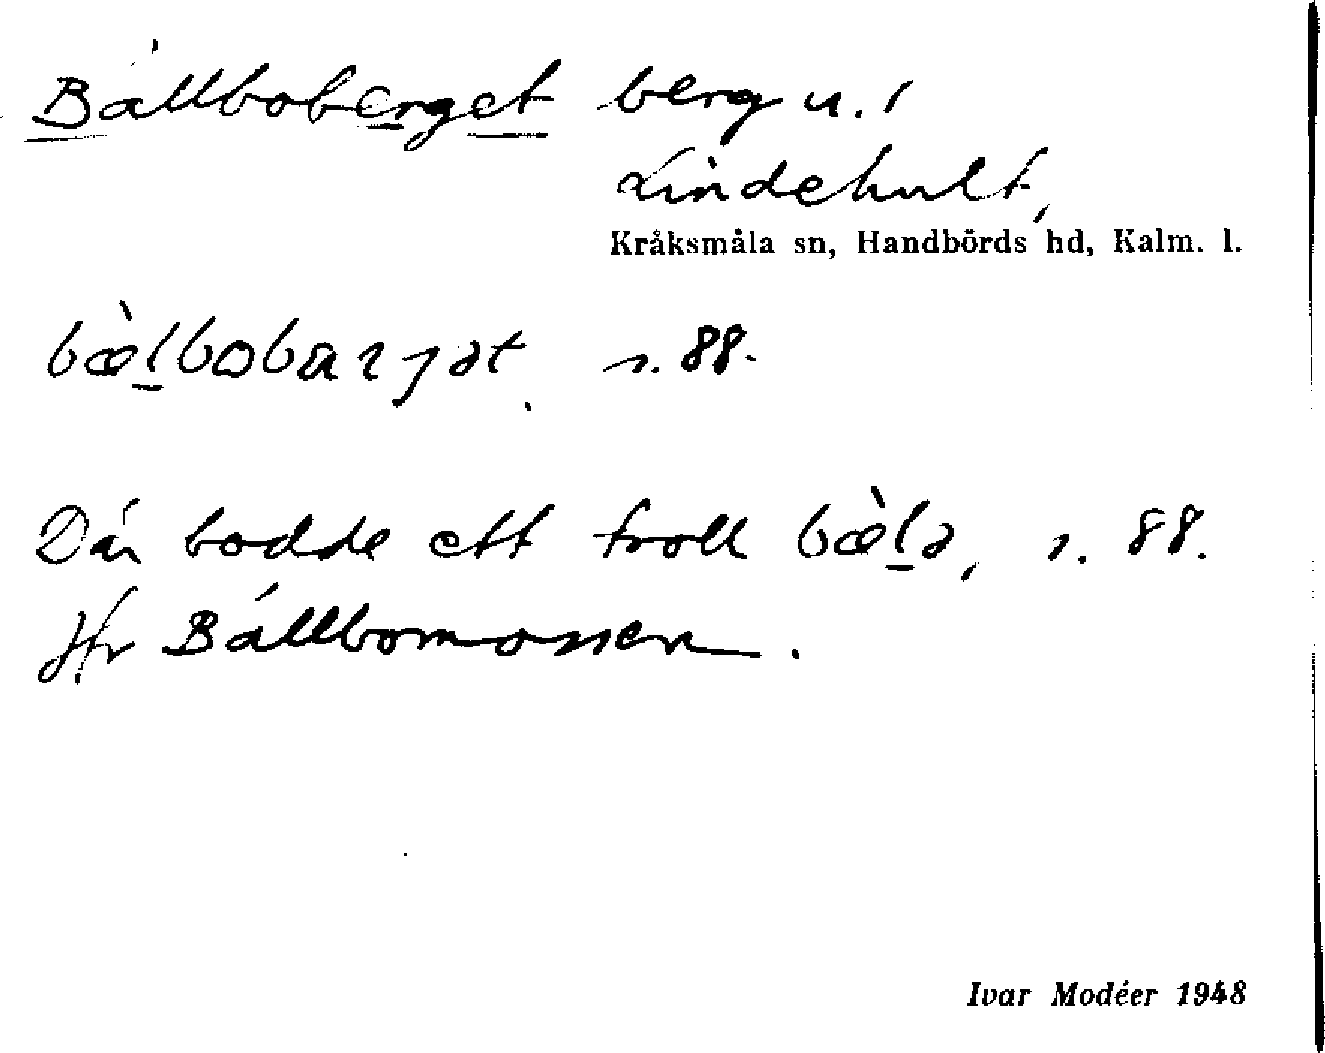 Bällboberget berg u. /
Lindehult,
Kråksmåla sn, Handbörds hd, Kalm. l.
bæ̀l̠bobarjət s. 88.
Där bodde ett troll bæ̀l̠ə, s. 88.
Jfr Bällbomossen.
Ivar Modéer 1948